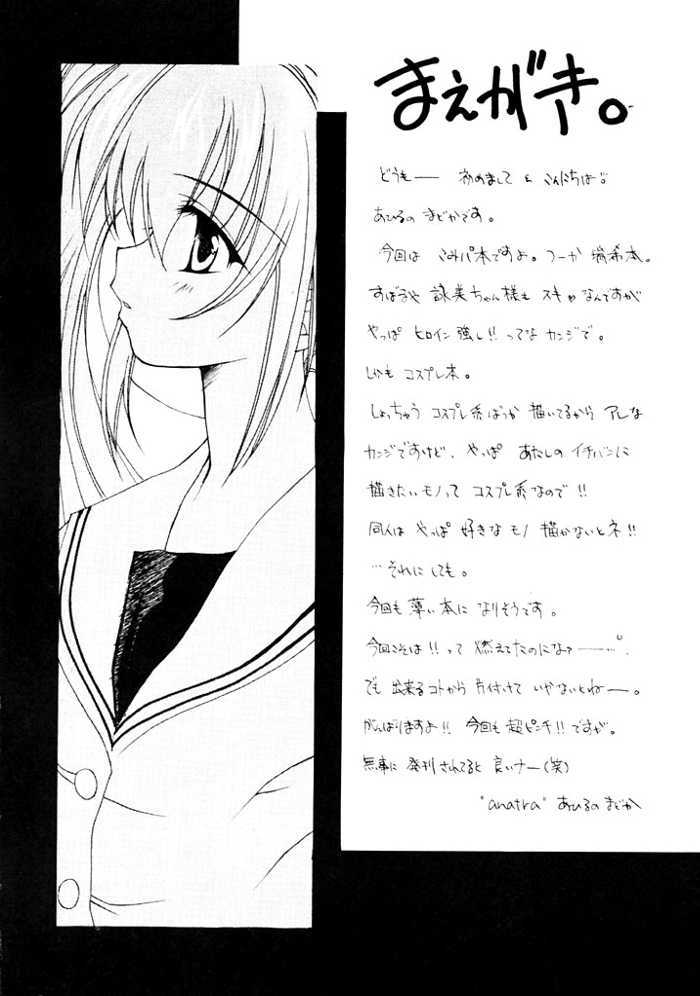 まえがき。
どうもー 初めまして & こんにちは。
あひるの まどかです。
今回は こみパ本ですよ。つーか 瑞希本。
すばるや 詠美ちゃん様も スキャなんですが
やっぱ ヒロイン強し!! ってな カンジで。
しかも コスプレ本。
しょっちゅう コスプレ系ばっか 描いてるから アレな
カンジですけど、やっぱ あたしの イチバンに
描きたいモノって コスプレ系なので!!
同人は やっぱ 好きな モノ 描かないとネ!!
…それに しても。
今回も 薄い本に なりそうです。
今回こそは!! って 燃えてたのになァー…。
でも 出来るコトから 片付けて いかないとねー。
がんばりますよ!! 今回も 超ピンチ!! ですが。
無事に 発刊されてると 良いナー(笑)
"anatra" あひるの まどか